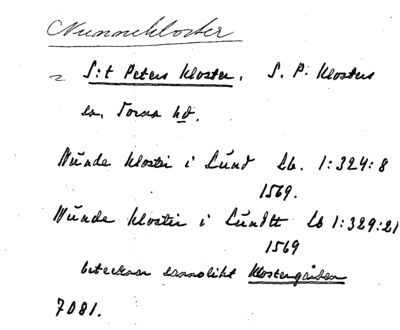 Nunnekloster
~ S:t Peters Kloster. S. P: Klosters
sn, Torna hd.
Núnde kloster i Lúnd Lb. 1:324:8
1569.
Núnde kloster i Lúndtt Lb 1:329:21
1569
betecknar sannolikt Klostergården
7081.